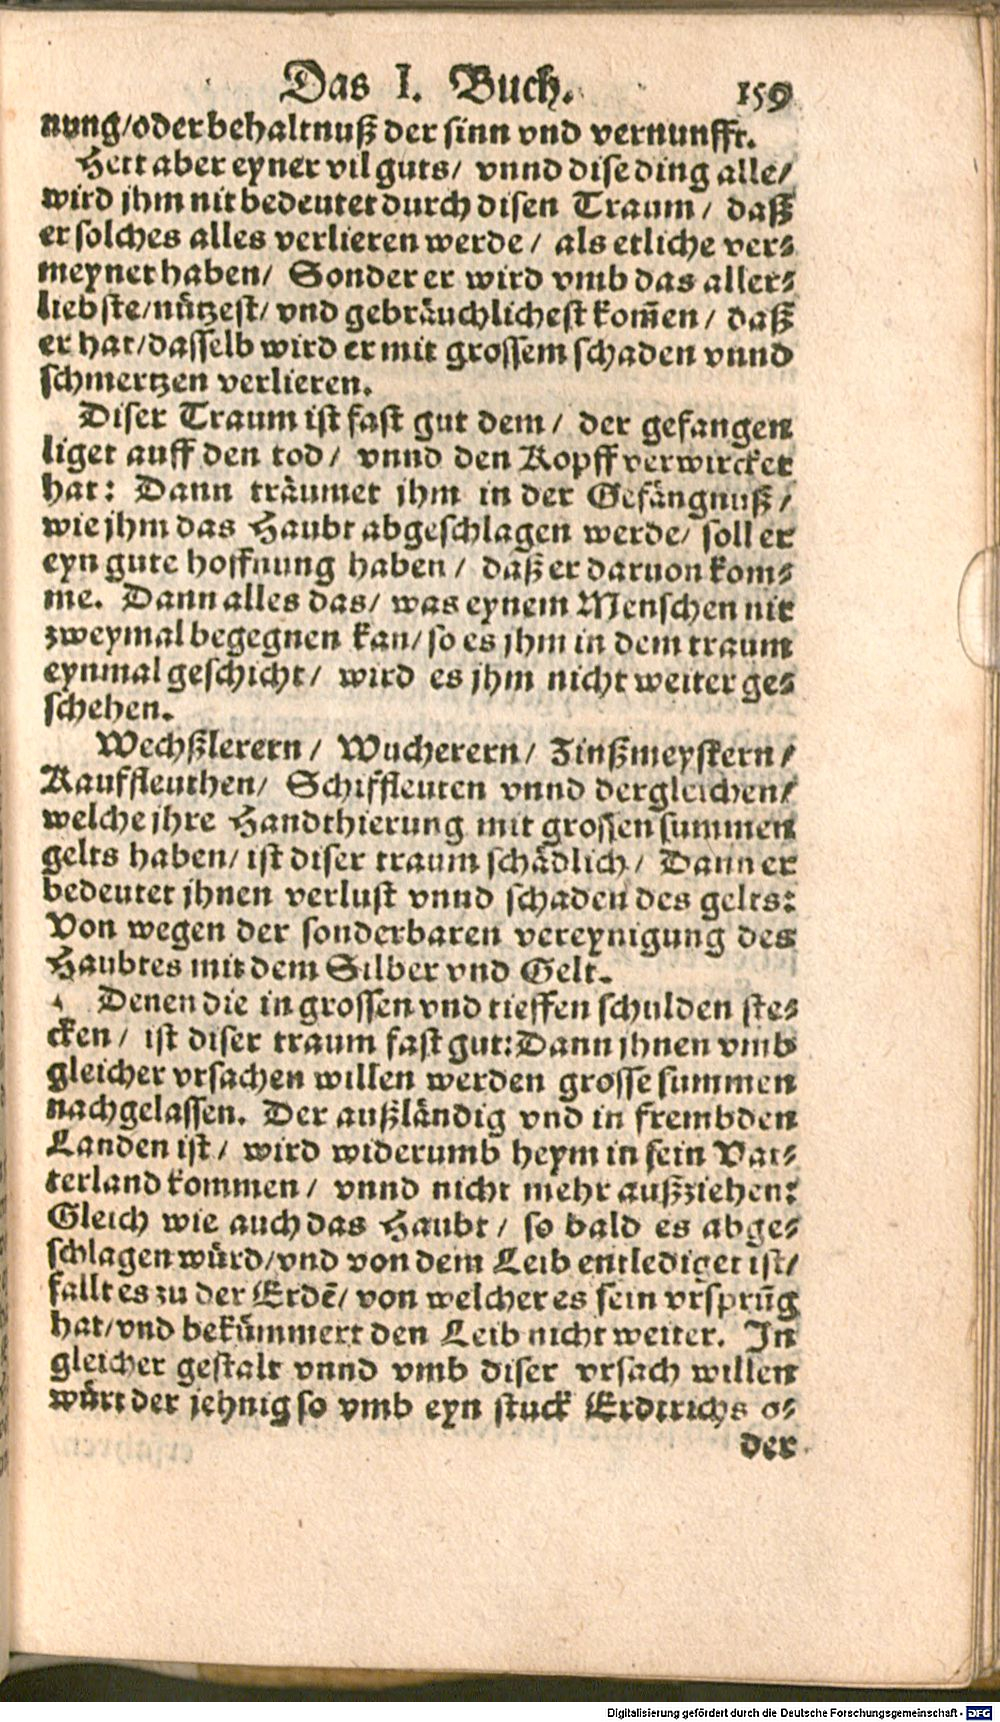 Das I. Buch. 159
nung/oder behaltnuß der sinn vnd vernunfft.
Hett aber eyner vil guts/ vnnd dise ding alle/
wird jhm nit bedeutet durch disen Traum/ daß
er solches alles verlieren werde/ als etliche ver-
meynet haben/ Sonder er wird vmb das aller-
liebste/nützest/ vnd gebräuchlichest kom̃en/ daß
er hat/dasselb wird er mit grossem schaden vnnd
schmertzen verlieren.
Diser Traum ist fast gut dem/ der gefangen
liget auff den tod/ vnnd den Kopff verwircket
hat: Dann träumet jhm in der Gefängnuß/
wie jhm das Haubt abgeschlagen werde/ soll er
eyn gute hoffnung haben/ daß er daruon kom-
me. Dann alles das/ was eynem Menschen nit
zweymal begegnen kan/ so es jhm in dem traum
eynmal geschicht/ wird es jhm nicht weiter ge-
schehen.
Wechßlerern/ Wucherern/ Zinßmeystern/
Kauffleuthen/ Schiffleuten vnnd dergleichen/
welche jhre Handthierung mit grossen summen
gelts haben/ ist diser traum schädlich/ Dann er
bedeutet jhnen verlust vnnd schaden des gelts:
Von wegen der sonderbaren vereynigung des
Haubtes mit dem Silber vnd Gelt.
Denen die in grossen vnd tieffen schulden ste-
cken/ ist diser traum fast gut: Dann jhnen vmb
gleicher vrsachen willen werden grosse summen
nachgelassen. Der außländig vnd in frembden
Landen ist/ wird widerumb heym in sein Vat-
terland kommen/ vnnd nicht mehr außziehen:
Gleich wie auch das Haubt/ so bald es abge-
schlagen würd/vnd von dem Leib entlediget ist/
fallt es zu der Erdẽ/ von welcher es sein vrsprũg
hat/vnd bekümmert den Leib nicht weiter. In
gleicher gestalt vnnd vmb diser vrsach willen
würt der jehnig so vmb eyn stuck Erdtrichs o-
der
Digitalisierung gefördert durch die Deutsche Forschungsgemeinschaft - DFG